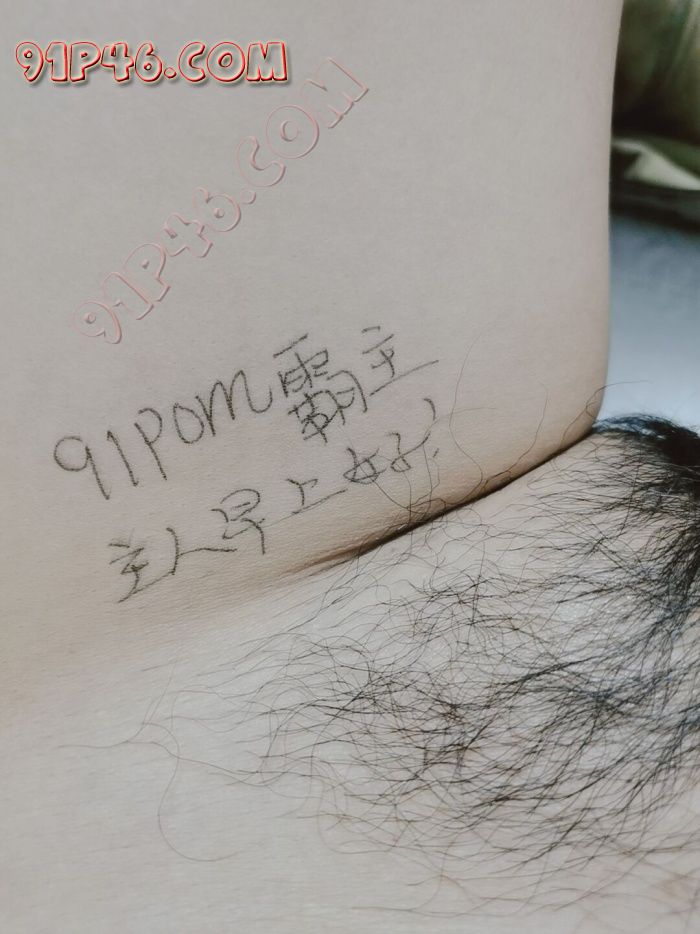 91P46.COM
91P46.COM
91POM霸主
主人早上好